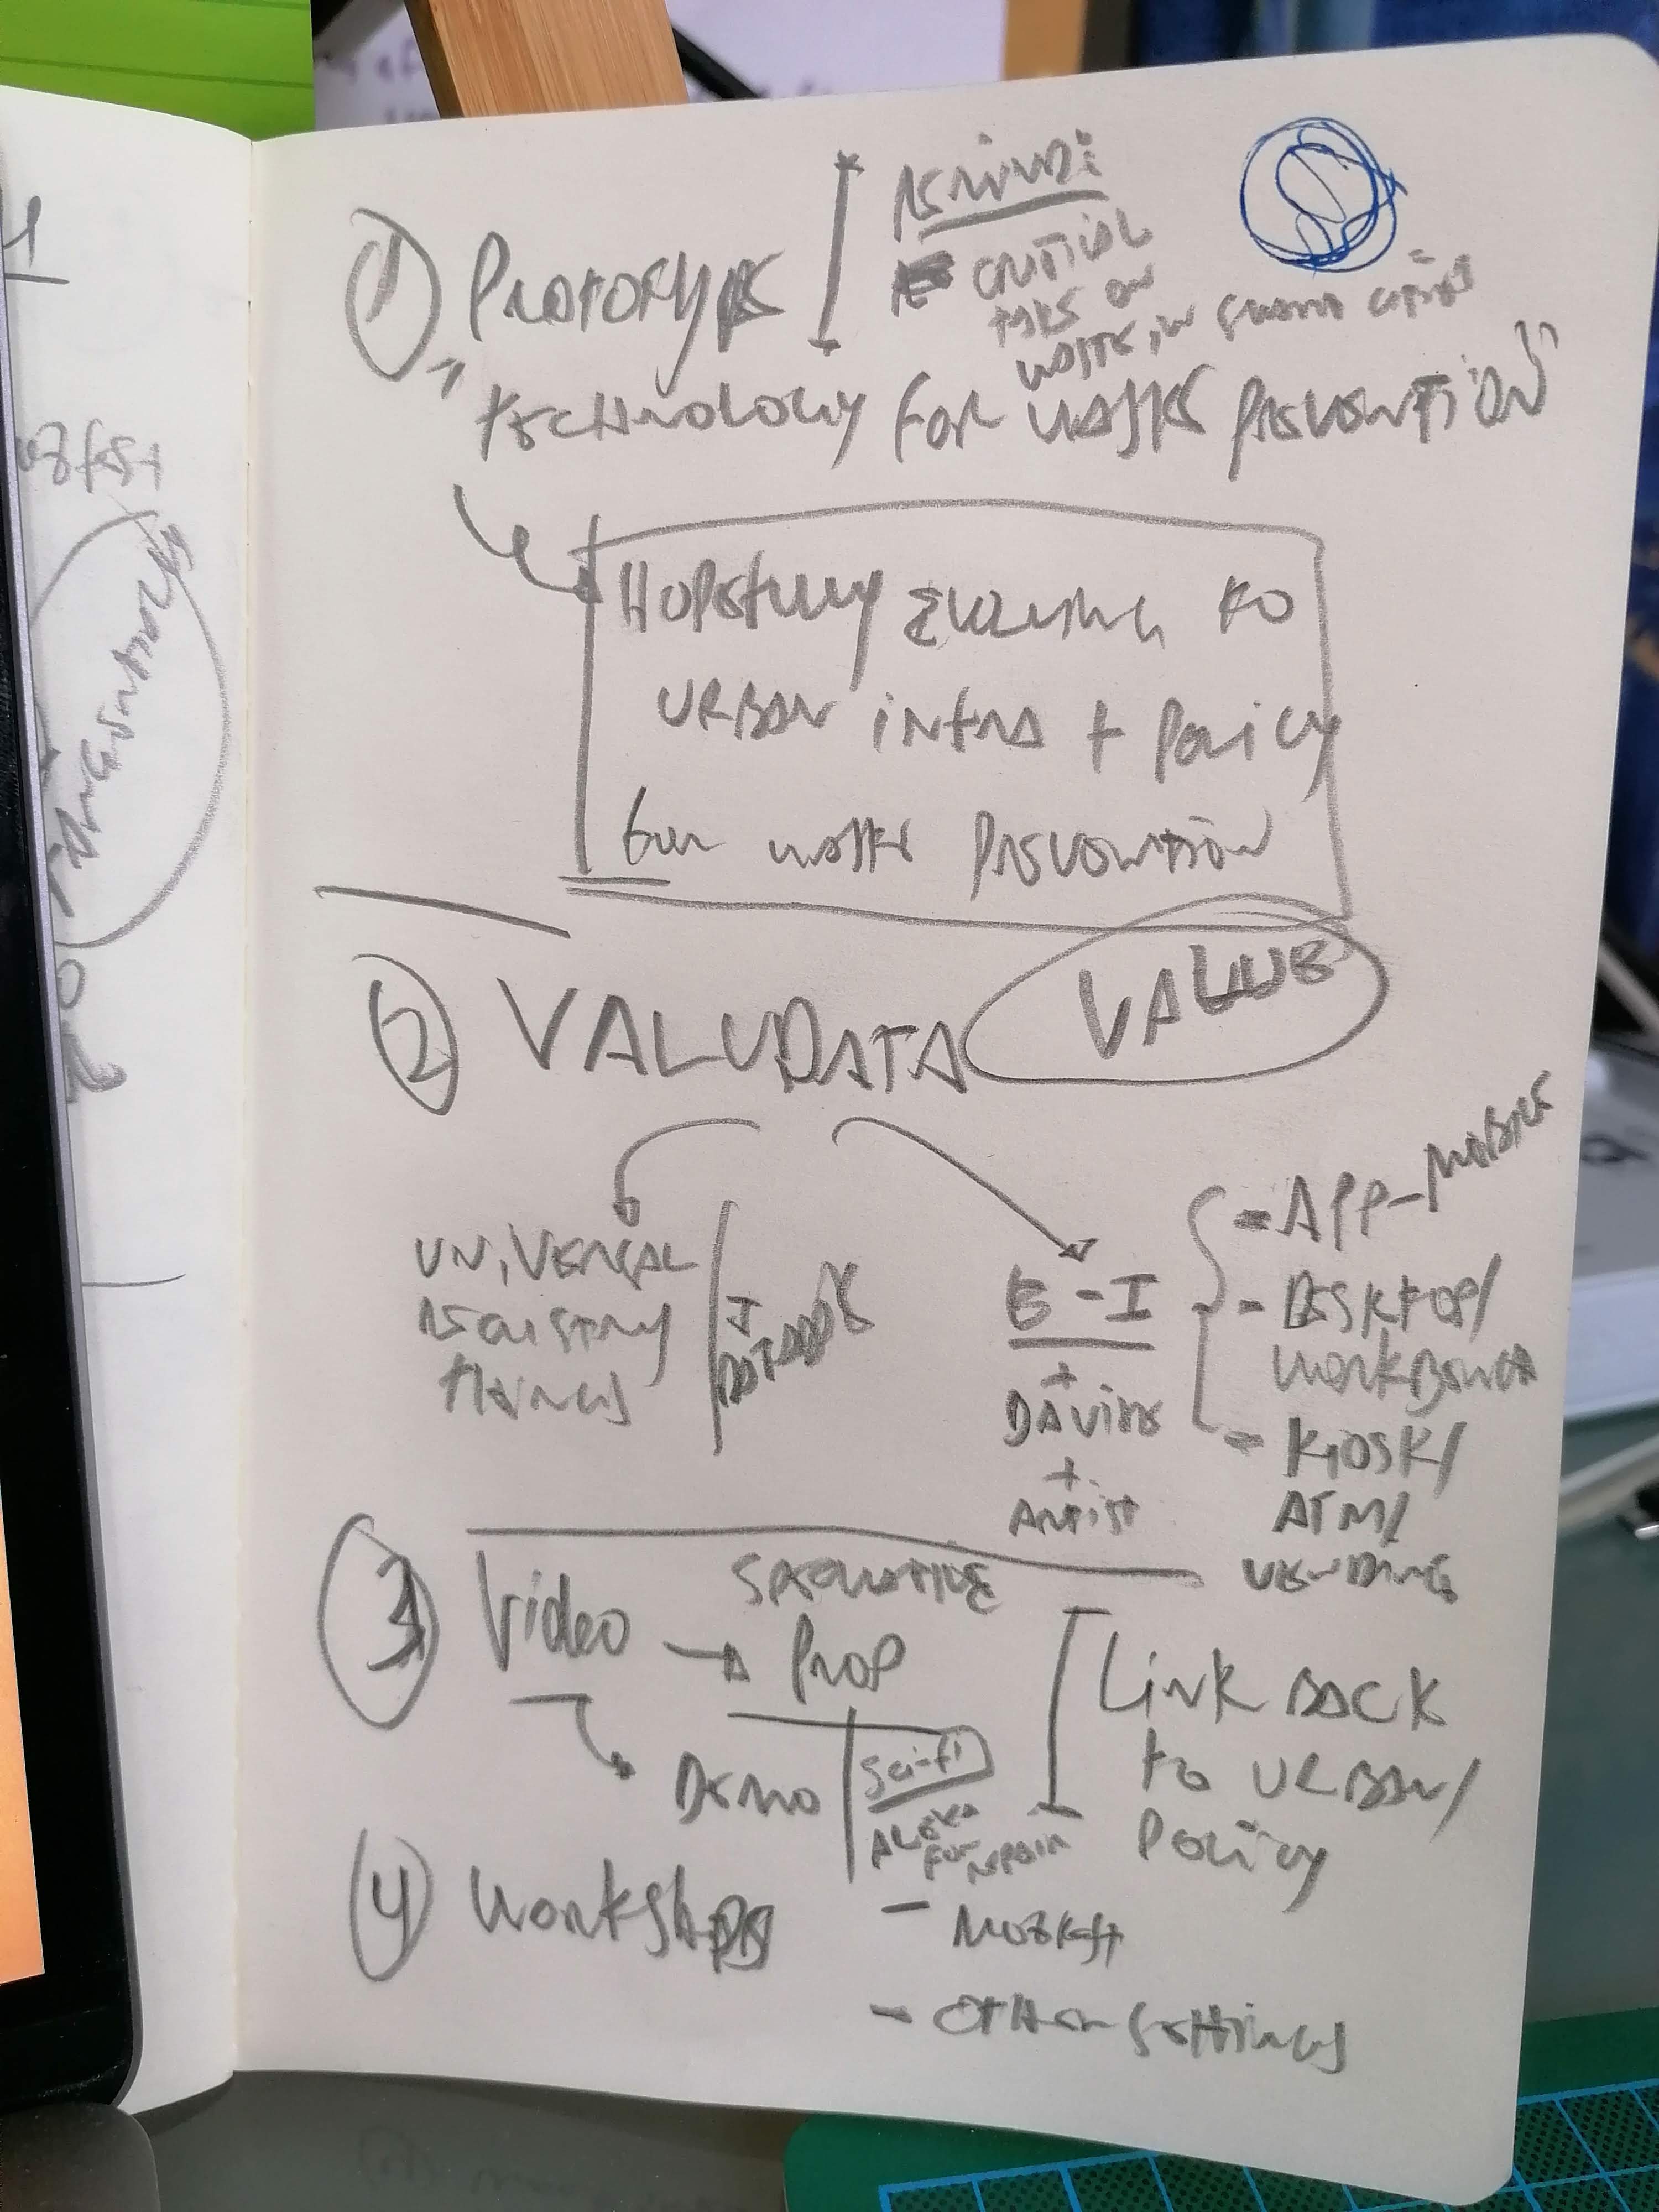 1 PROTOTYPE
REMIND:
CRITICAL
TAKE ON
WASTE IN SMART CITIES
"TECHNOLOGY FOR WASTE PREVENTION"
HOPEFULLY EVOLVING TO
URBAN INFRA + POLICY
for WASTE PREVENTION
2 VALUDATA VALUE
UNIVERSAL
REGISTRY
THINGS
DATABASE
E-I
+
DAVINE
+
ARTIST
- APP - MOBILE
- DESKTOP/
WORKBENCH
- KIOSK/
ATM/
VENDING
3 Video
SPECULATIVE
PROP
DEMO
Sci-fi
ALEXA
FOR REPAIR
LINK BACK
TO URBAN/
POLICY
4 WORKSHOPS
- MOZFEST
- OTHER SETTINGS